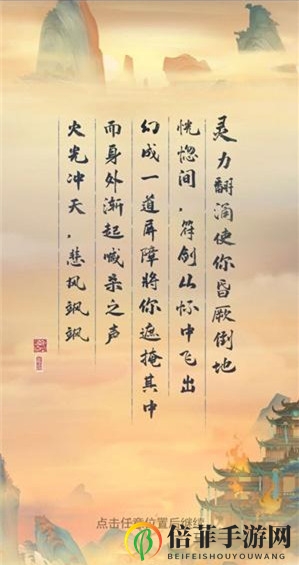 灵力翻涌使你昏厥倒地
恍惚间，符剑从怀中飞出
幻成一道屏障将你遮掩其中
而身外渐起喊杀之声
火光冲天，悲风飒飒
点击任意位置后继续
倍菲手游网
BEIFEISHOUYOUWANG